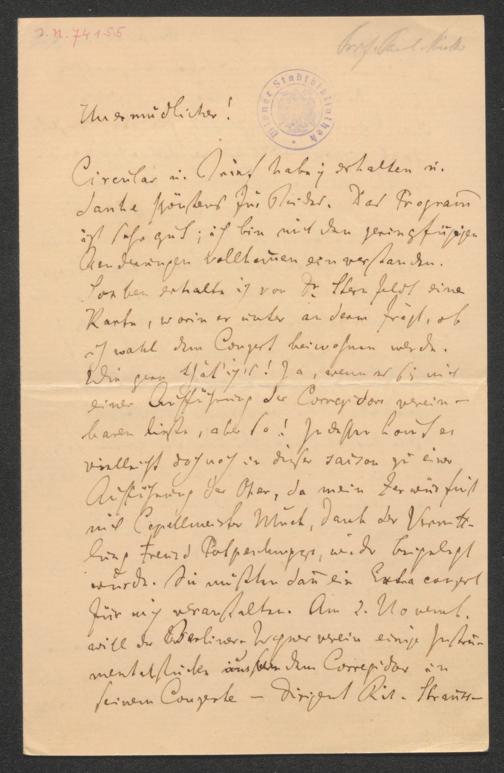 J. N. 74155
Wiener Stadtbibliothek
Unermüdlicher!
Circular u. Brief hab ich erhalten u.
danke schönstens für Beides. Das Programm
ist sehr gut; ich bin mit den geringfügigen
Aenderungen vollkommen einverstanden.
Soeben erhalte ich von Dr. Sternfeldt eine
Karte, worin er unter anderm frägt, ob
ich wohl dem Conzert beiwohnen werde.
Wie gern thät' ich's! Ja, wenn es sich mit
einer Aufführung des Corregidor verein-
baren ließe, aber so! Indessen kommt es
vielleicht doch noch in dieser Saison zu einer
Aufführung der Oper, da mein Zerwürfniß
mit Capellmeister Muck, Dank der Vermitt-
lung Freund wieder beigelegt
wurde. Sie müßten dann ein Extraconzert
für mich veranstalten. Am 2. Novemb.
will der Berliner Wagnerverein einige Instru-
mentalstücke aus dem Corregidor in
seinem Conzerte – Dirigent Rich. Strauss –